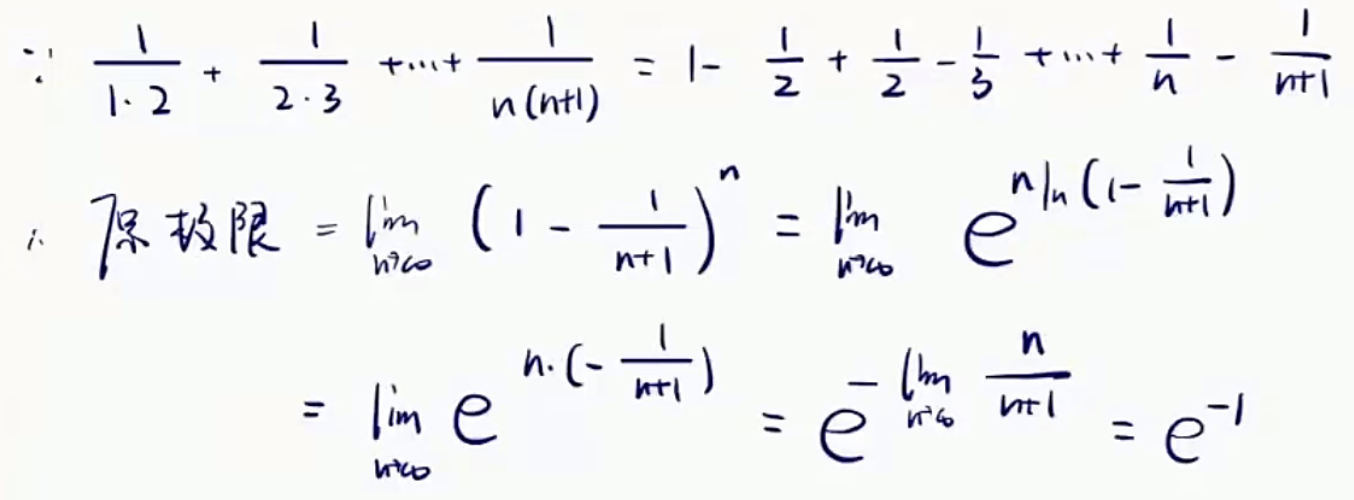 ∵ 1/(1·2) + 1/(2·3) + ··· + 1/(n(n+1)) = 1 - 1/2 + 1/2 - 1/3 + ··· + 1/n - 1/(n+1)
∴ 原极限 = lim_{n→∞} (1 - 1/(n+1))^n = lim_{n→∞} e^{n ln(1 - 1/(n+1))}
= lim_{n→∞} e^{n·(-1/(n+1))} = e^{-lim_{n→∞} n/(n+1)} = e^{-1}